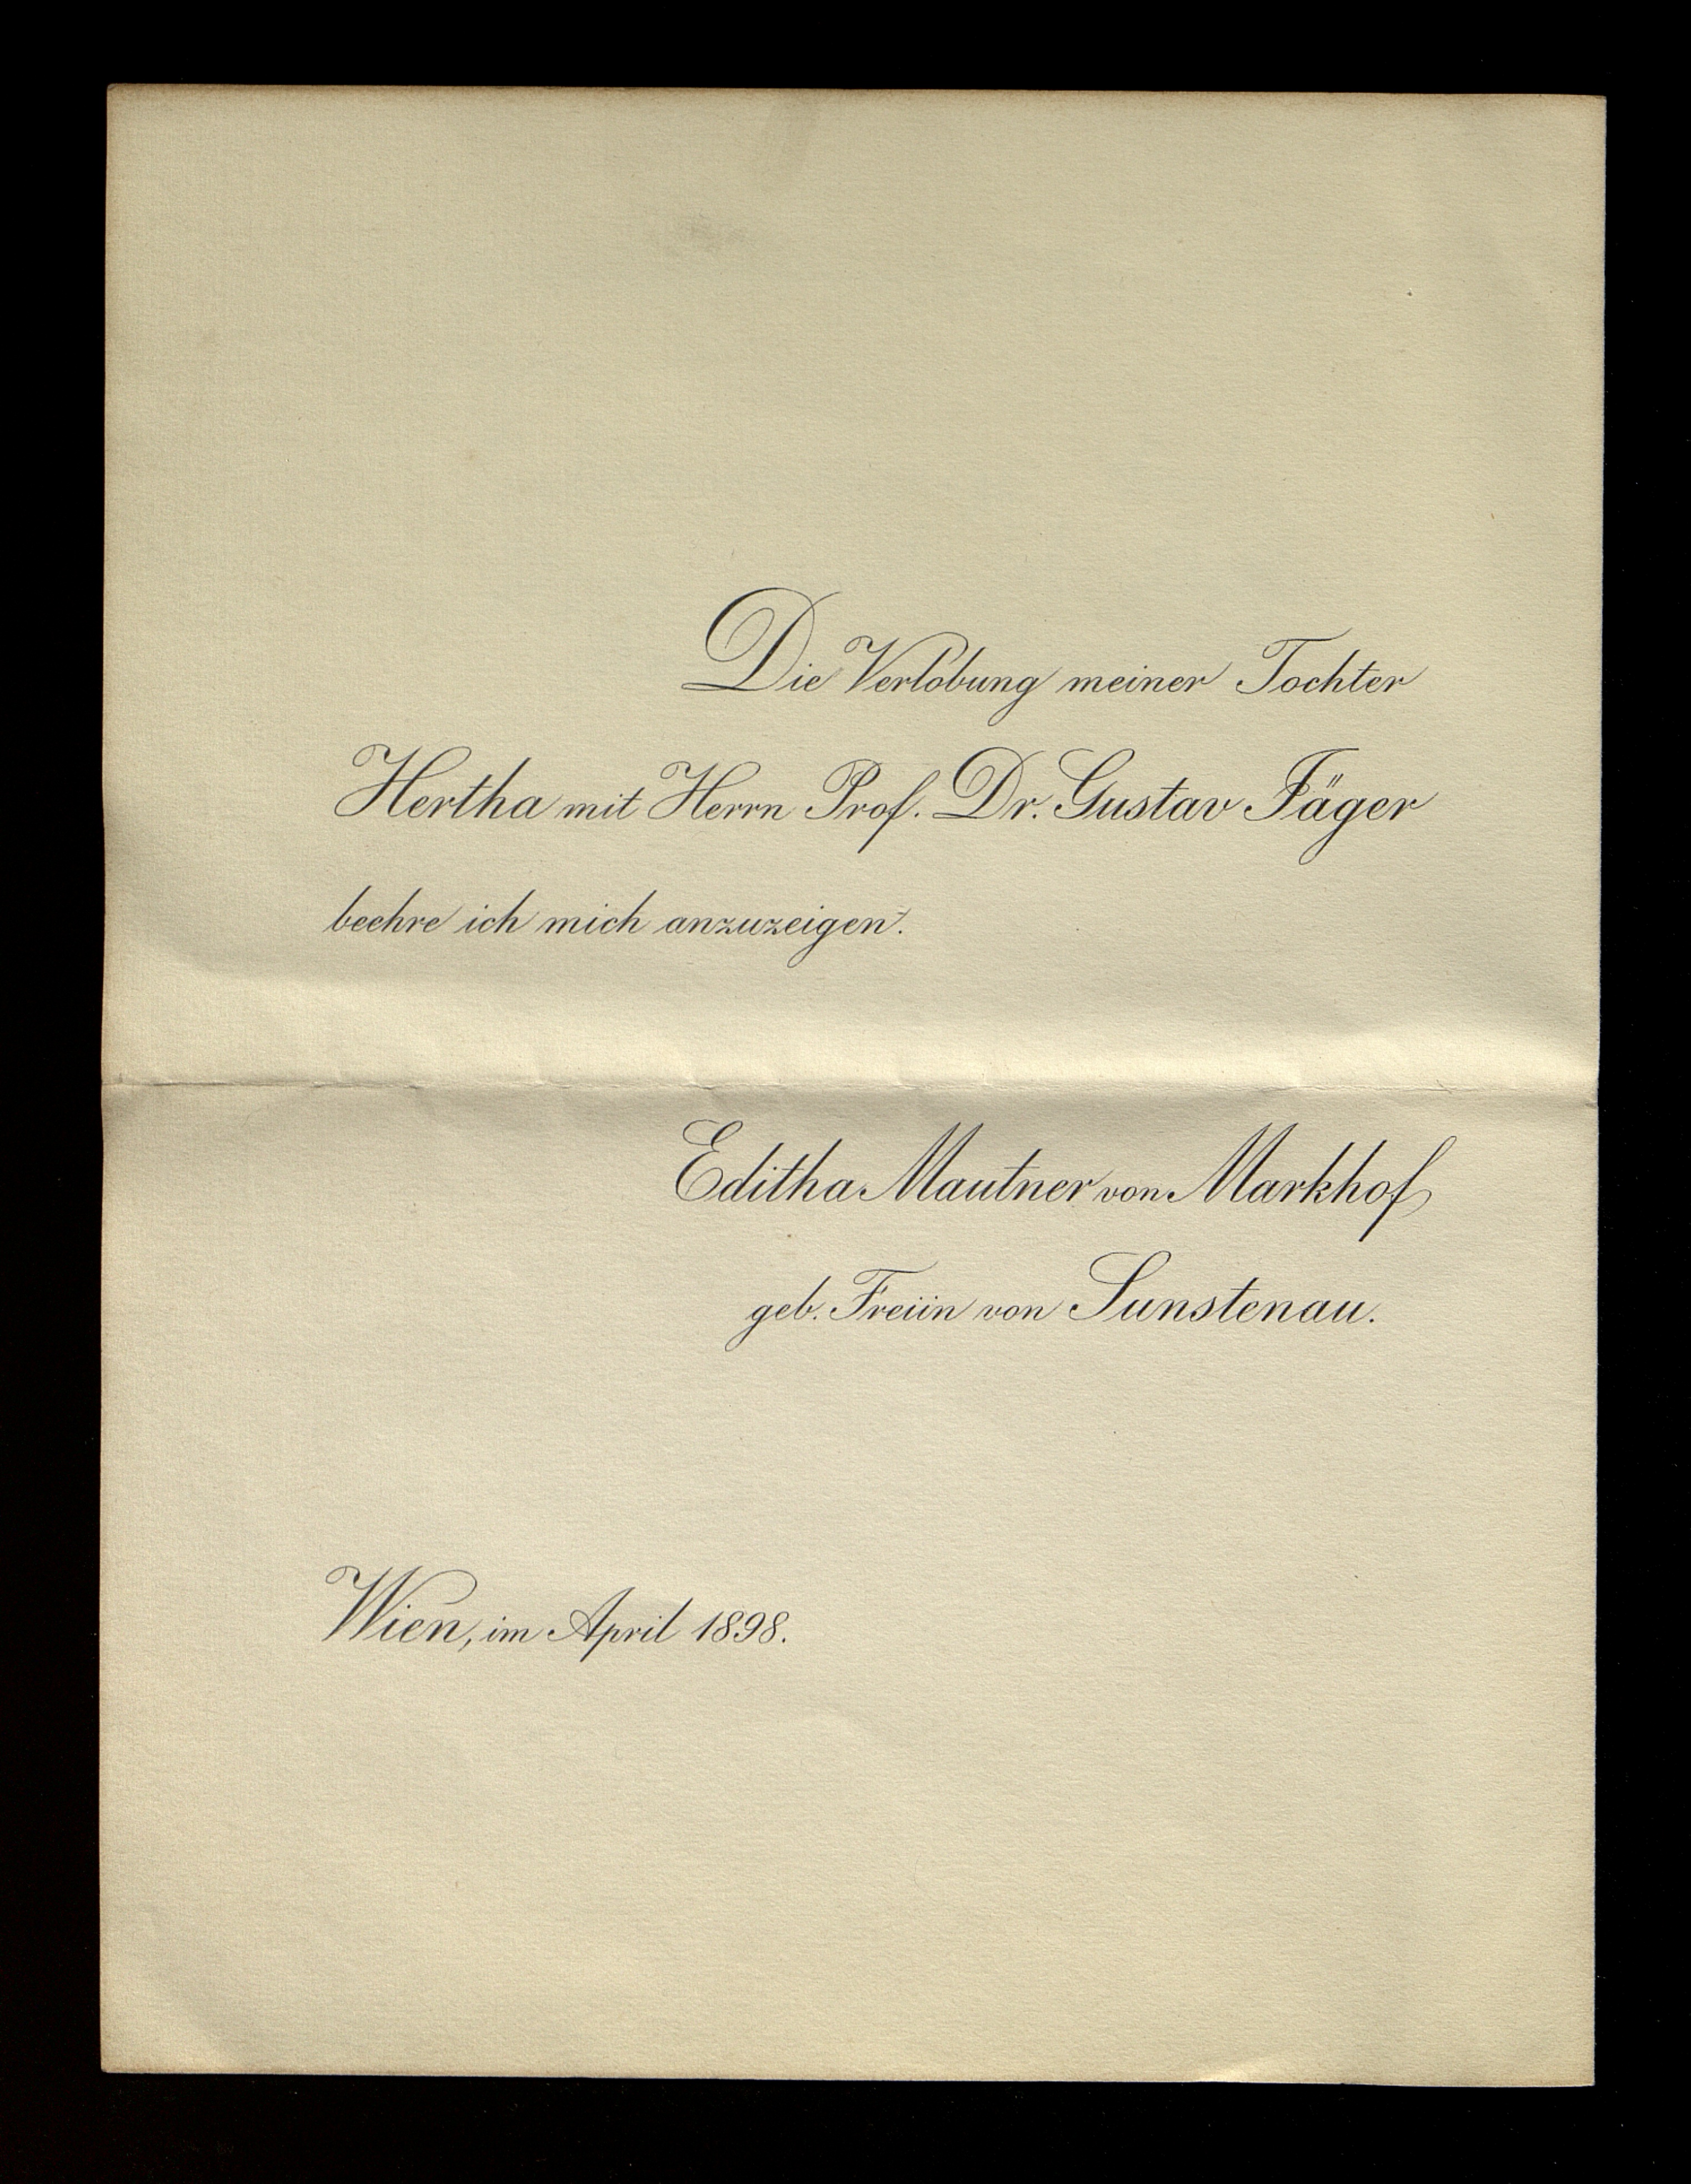 Die Verlobung meiner Tochter
Hertha mit Herrn Prof. Dr. Gustav Jäger
beehre ich mich anzuzeigen.
Editha Mautner von Markhof
geb. Freiin von Sunstenau.
Wien, im April 1898.